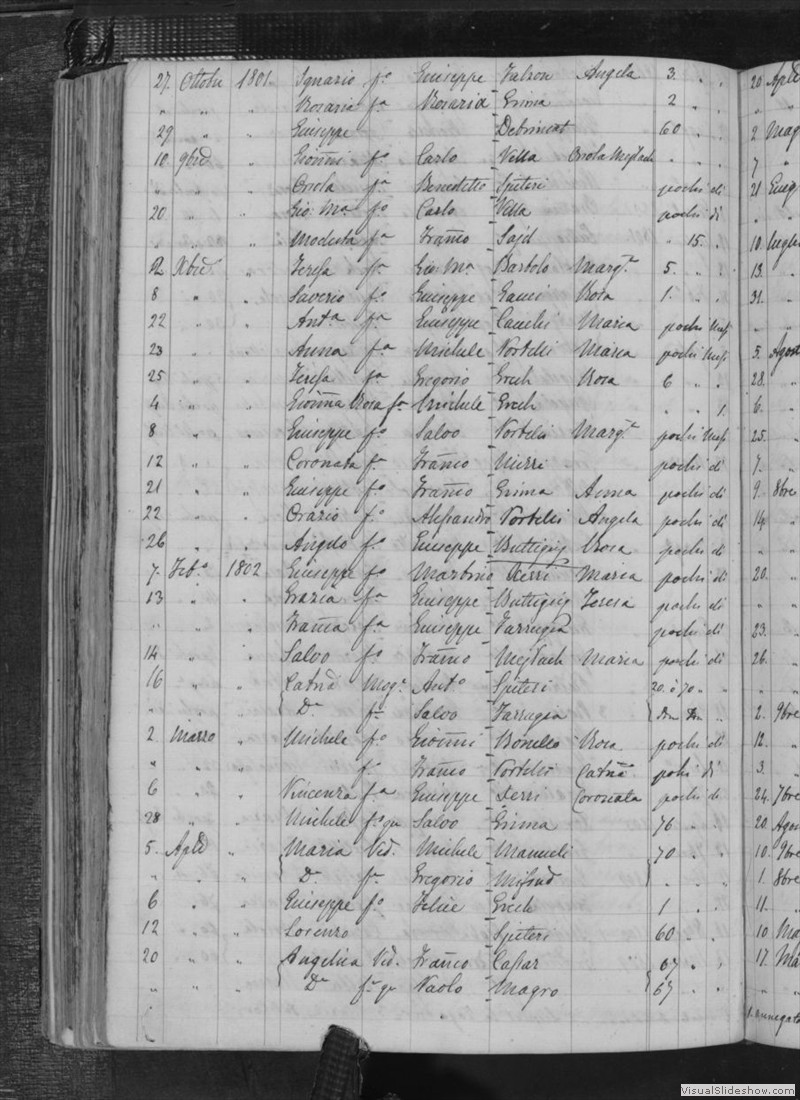 27. Ottobre 1801. Ignazio fo Giuseppe Falzon Angela 3. " "
" " " Rosaria fa Rosario Grima 2 " "
29 " " Giuseppe Debrincat 60 " "
10. 9bre " Gioñni fo Carlo Vella Orsola Mejlach " " "
" " " Orsola fa Benedetto Spiteri pochi di
20 " " Gio Ma fo Carlo Vella pochi di
" " " Modesta fa Franco Sajd " 15. "
2 Xbre " Teresa fa Gio Ma Bartolo Marga 5. " "
8 " " Saverio fo Giuseppe Gauci Rosa 1. " "
22 " " Anta fa Giuseppe Camilleri Maria pochi Mesi
23 " " Anna fa Michele Portelli Maria pochi Mesi
25 " " Teresa fa Gregorio Grech Rosa 6 " "
4 " " Gioñna Rosa fa Michele Grech " " 1.
8 " " Giuseppe fo Salvo Portelli Marga pochi Mesi
12 " " Coronata fa Franco pochi di
21 " " Giuseppe fo Franco Grima Anna pochi di
22 " " Orazio fo Alessandro Portelli Angela pochi di
26 " " Angelo fo Giuseppe Buttigieg Rosa pochi di
7. Febo 1802 Giuseppe fo Martino Maria pochi di
13 " " Grazia fa Giuseppe Buttigieg Teresa pochi di
" " " Frañca fa Giuseppe Farrugia pochi di
14 " " Salvo fo Franco Mejlach Maria pochi di
16 " " Catña Moge Anto Spiteri 20. à 70 "
" " " Da fa Salvo Farrugia
2. Marzo " Michele fo Gioñni Bonello Rosa pochi di
" " " fa Franco Portelli Catña pochi di
6 " " Vincenza fa Giuseppe Coronata pochi di
28 " " Michele fo qu Salvo Grima 76 " "
5. Aple " Maria Vid. Michele Manueli 70 " "
" " " Da fa Gregorio Mifsud " "
6 " " Giuseppe fo Felice Grech 1 " "
12 " " Lorenzo Spiteri 60 " "
20 " " Angelica Vid. Franco Cassar 67 " "
" " " Da fa qu Paolo Magro 67 " "
20 Aple
2. Mag
7 "
21 Giug
10. Luglio
13. "
31. "
5. Agost
28. "
6. "
25. "
7. "
9. 8bre
14. "
20. "
23. "
26. "
2. 9bre
12. "
3. "
24. 7bre
20. Agos
10. 9bre
1. 8bre
11. "
10 Ma
17. Ma
annegato
VisualSlideshow.com